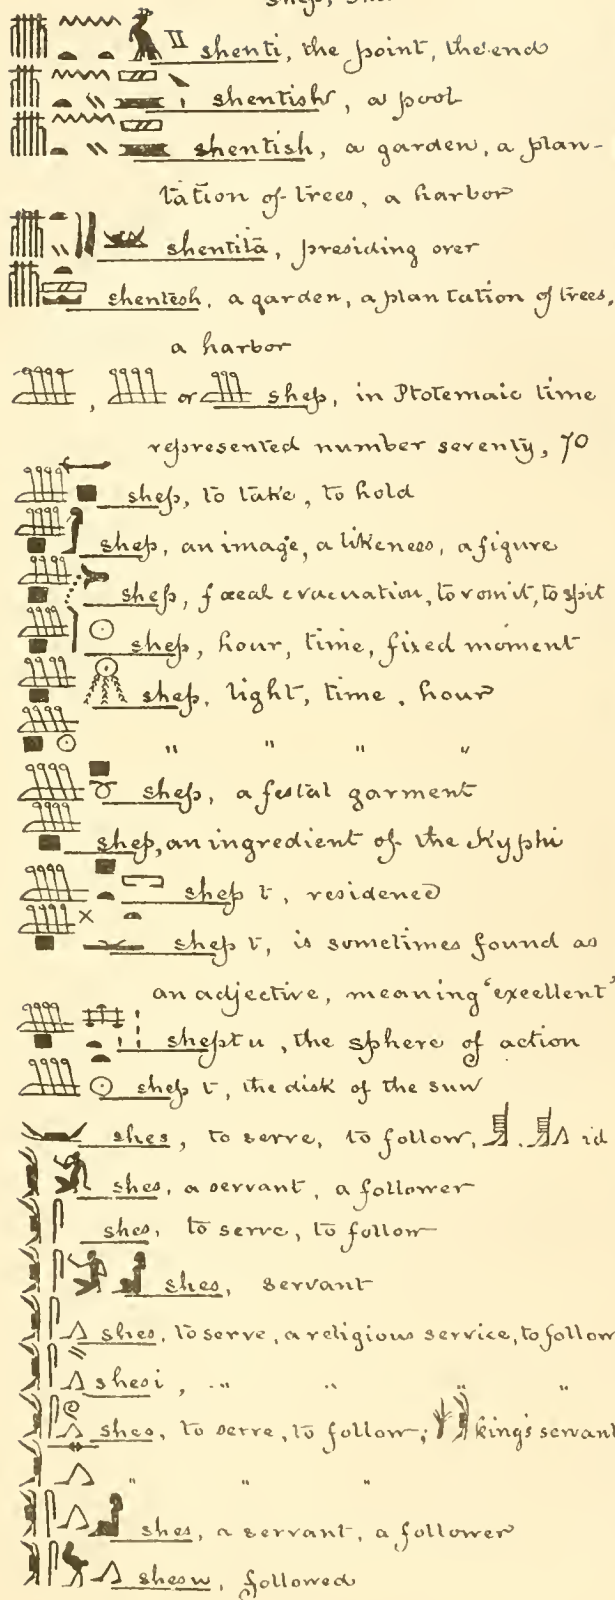 shenti, the point, the end
shentish, a pool
shentish, a garden, a plan-
tation of trees, a harbor
shentitā, presiding over
shentesh, a garden, a plantation of trees,
a harbor
, or shep, in Ptolemaic time
represented number seventy, 70
shep, to take, to hold
shep, an image, a likeness, a figure
shep, fæcal evacuation, to vomit, to spit
shep, hour, time, fixed moment
shep, light, time, hour
" " " "
shep, a festal garment
shep, an ingredient of the Kyphi
shep t, residence
shep t, is sometimes found as
an adjective, meaning "excellent"
sheptu, the sphere of action
shep t, the disk of the sun
shes, to serve, to follow, id
shes, a servant, a follower
shes, to serve, to follow
shes, servant
shes, to serve, a religious service, to follow
shesi, " " " "
shes, to serve, to follow; king's servant
" " "
shes, a servant, a follower
shesu, followed